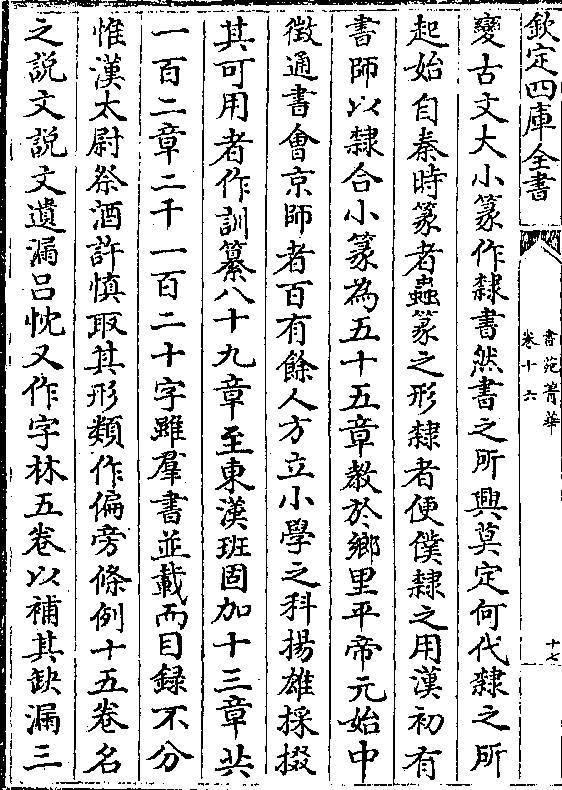 欽定四庫全書
書苑菁華
卷十六
十七
變古文大小篆作隸書然書之所興莫定何代隸之所
起始自秦時篆者蟲篆之形隸者便僕隸之用漢初有
書師以隸合小篆為五十五章教於鄉里平帝元始中
徵通書會京師者百有餘人方立小學之科揚雄採掇
其可用者作訓纂八十九章至東漢班固加十三章共
一百二章二千一百二十字雖羣書並載而目録不分
惟漢太尉祭酒許慎取其形類作偏旁條例十五卷名
之説文説文遺漏吕忱又作字林五卷以補其缺漏三